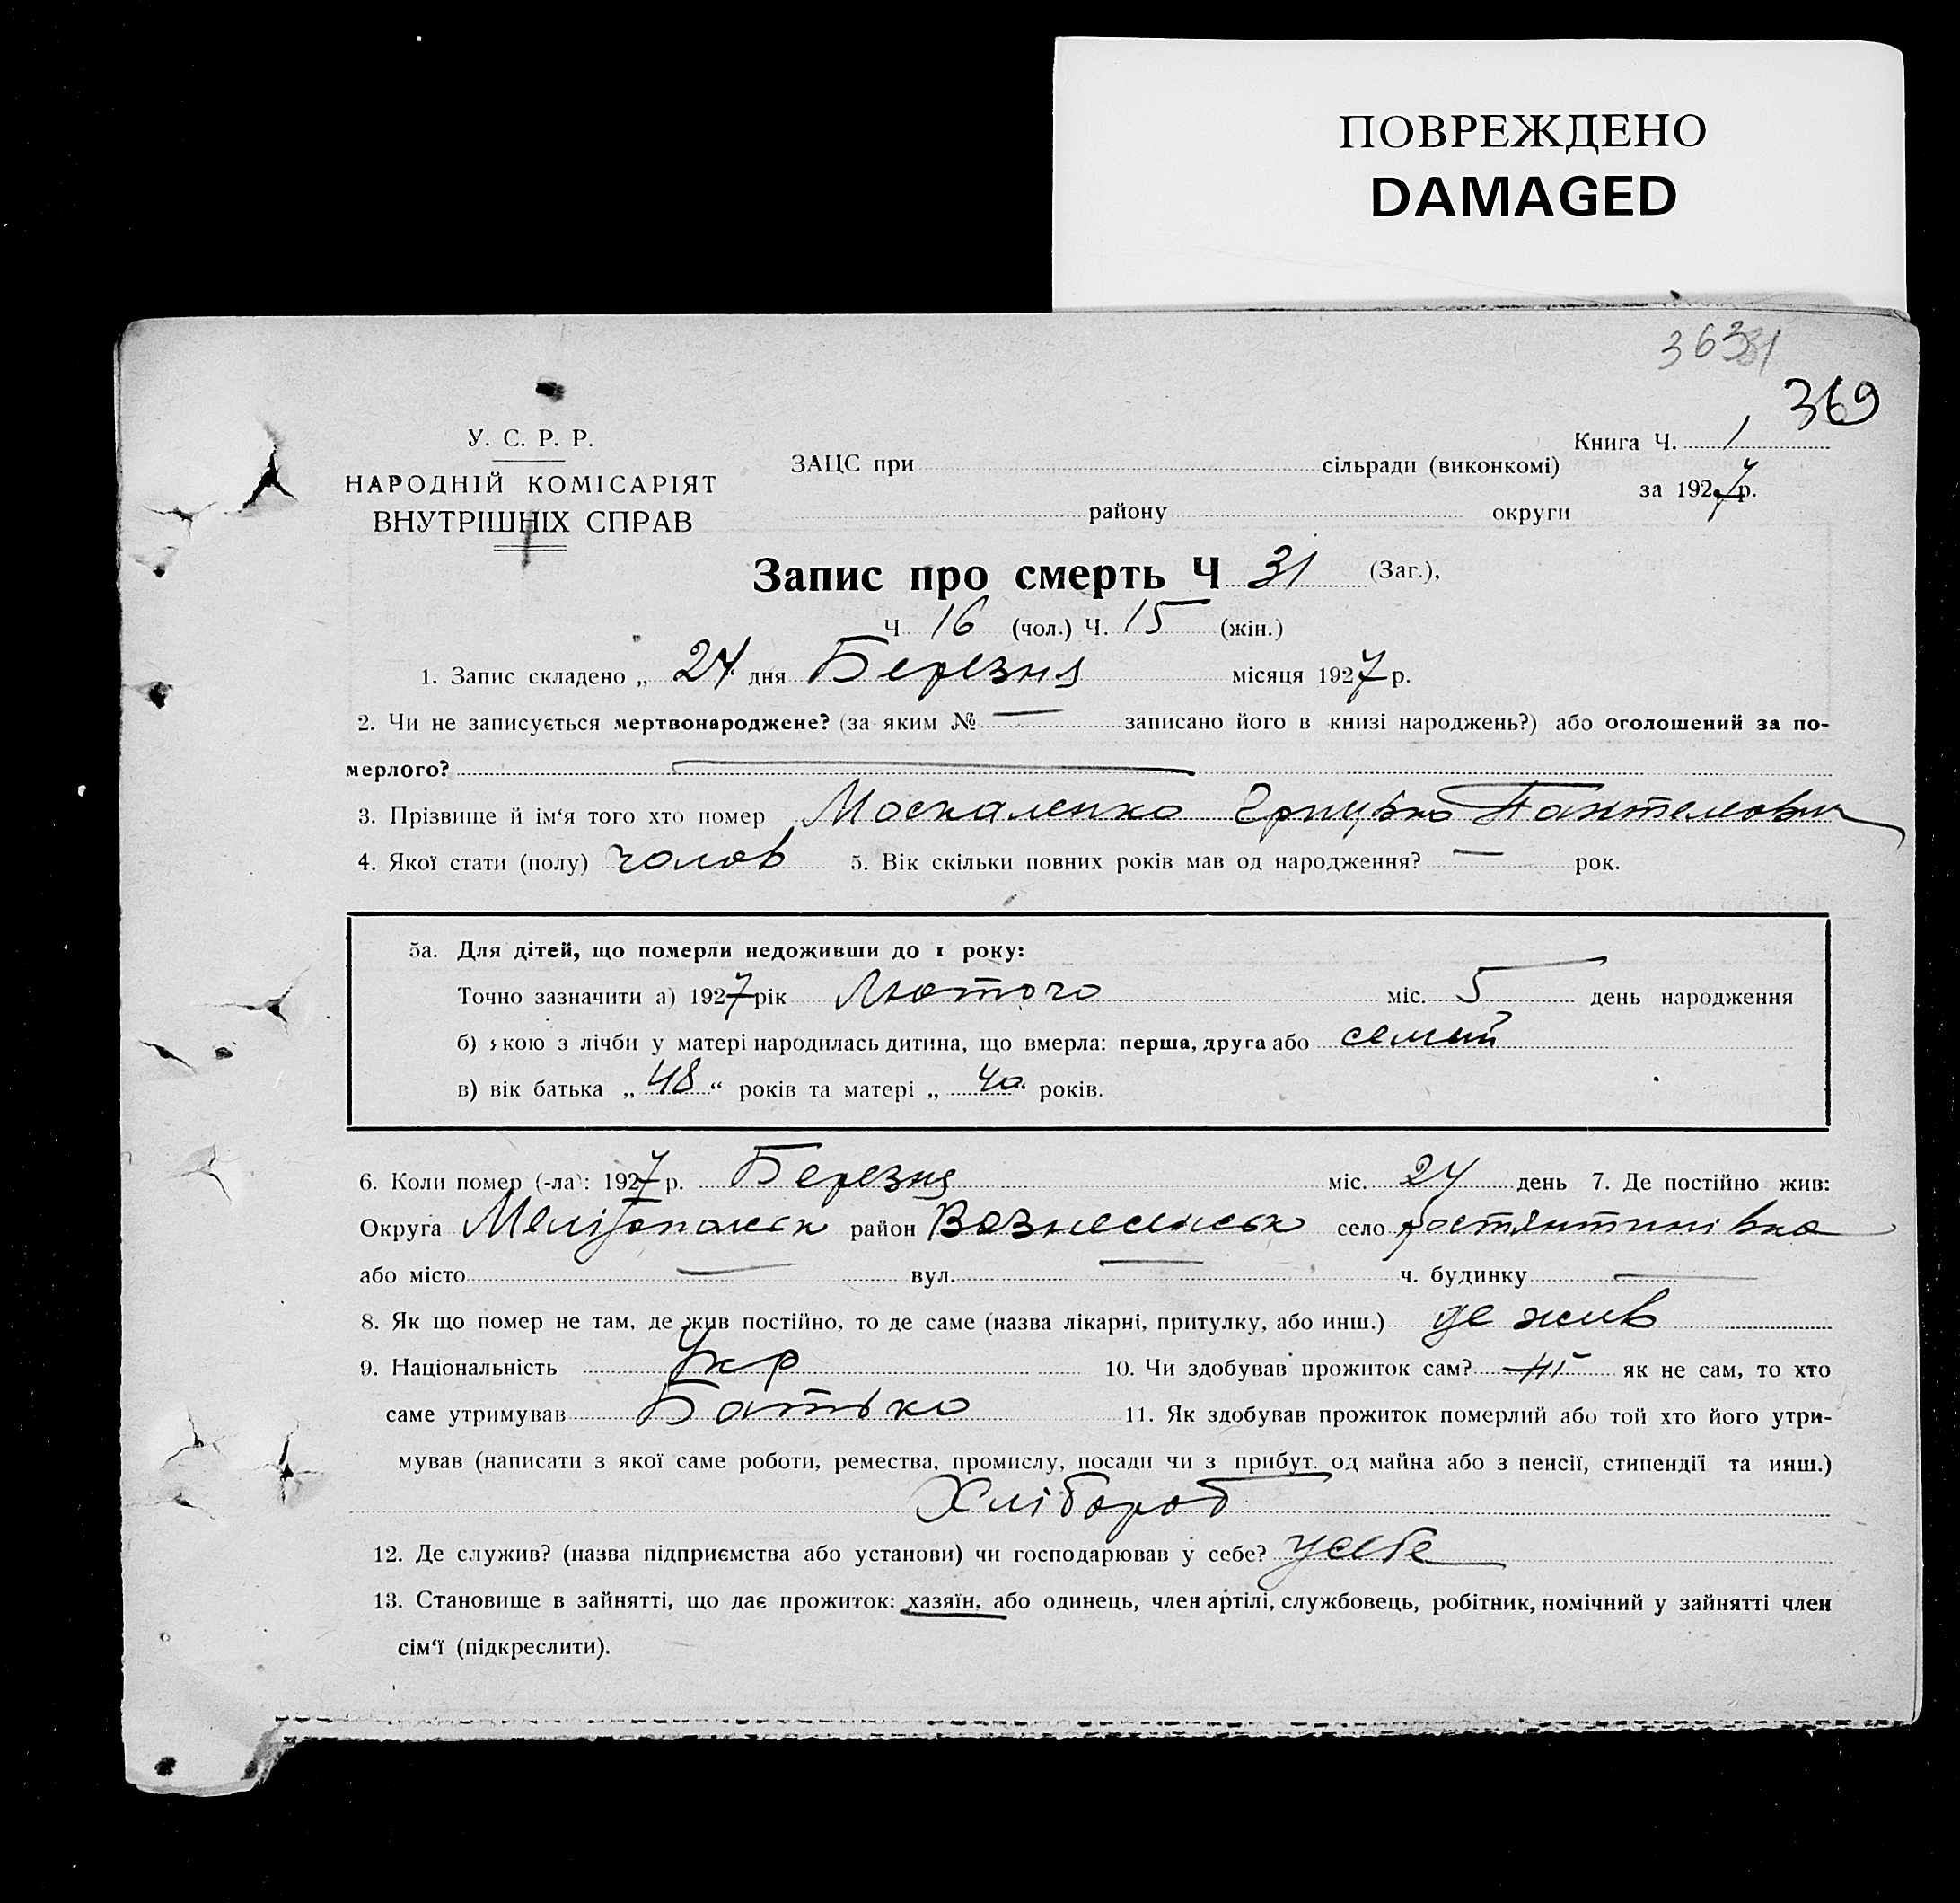 ПОВРЕЖДЕНО
DAMAGED
369
У. С. Р. Р.
НАРОДНІЙ КОМІСАРІЯТ
ВНУТРІШНІХ СПРАВ
ЗАЦС при сільради (виконкомі)
району округи
Книга Ч. 1
за 1927 р.
Запис про смерть Ч 31 (Заг.),
Ч 16 (чол.) Ч. 15 (жін.)
1. Запис складено „ 24 дня Березня місяця 1927 р.
2. Чи не записується мертвонароджене? (за яким № — записано його в книзі народжень?) або оголошений за по-
мерлого? —
3. Прізвище й ім‘я того хто помер Москаленко Грицько Пантелеович
4. Якої стати (полу) чолов 5. Вік скільки повних років мав од народження? — рок.
5а. Для дітей, що померли недоживши до 1 року:
Точно зазначити а) 1927 рік Лютого міс. 5 день народження
б) якою з лічби у матері народилась дитина, що вмерла: перша, друга або семий
в) вік батька „ 48 “ років та матері „ 40 “ років.
6. Коли помер (-ла): 1927 р. Березня міс. 24 день 7. Де постійно жив:
Округа Мелітопольск район Вознесенськ село костянтинівка
або місто — вул. — ч. будинку —
8. Як що помер не там, де жив постійно, то де саме (назва лікарні, притулку, або инш.) де жив
9. Національність Укр 10. Чи здобував прожиток сам? ні як не сам, то хто
саме утримував Батько 11. Як здобував прожиток померлий або той хто його утри-
мував (написати з якої саме роботи, ремества, промислу, посади чи з прибут. од майна або з пенсії, стипендії та инш.)
Хлібороб
12. Де служив? (назва підприємства або установи) чи господарював у себе? у себе
13. Становище в зайнятті, що дає прожиток: хазяїн, або одинець, член артілі, службовець, робітник, помічний у зайнятті член
сім‘ї (підкреслити).